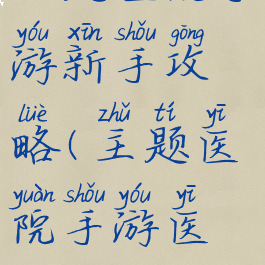 yóu xīn shǒu gōng
游新手攻
lüè zhǔ tí yī
略(主题医
yuàn shǒu yóu yī
院手游医